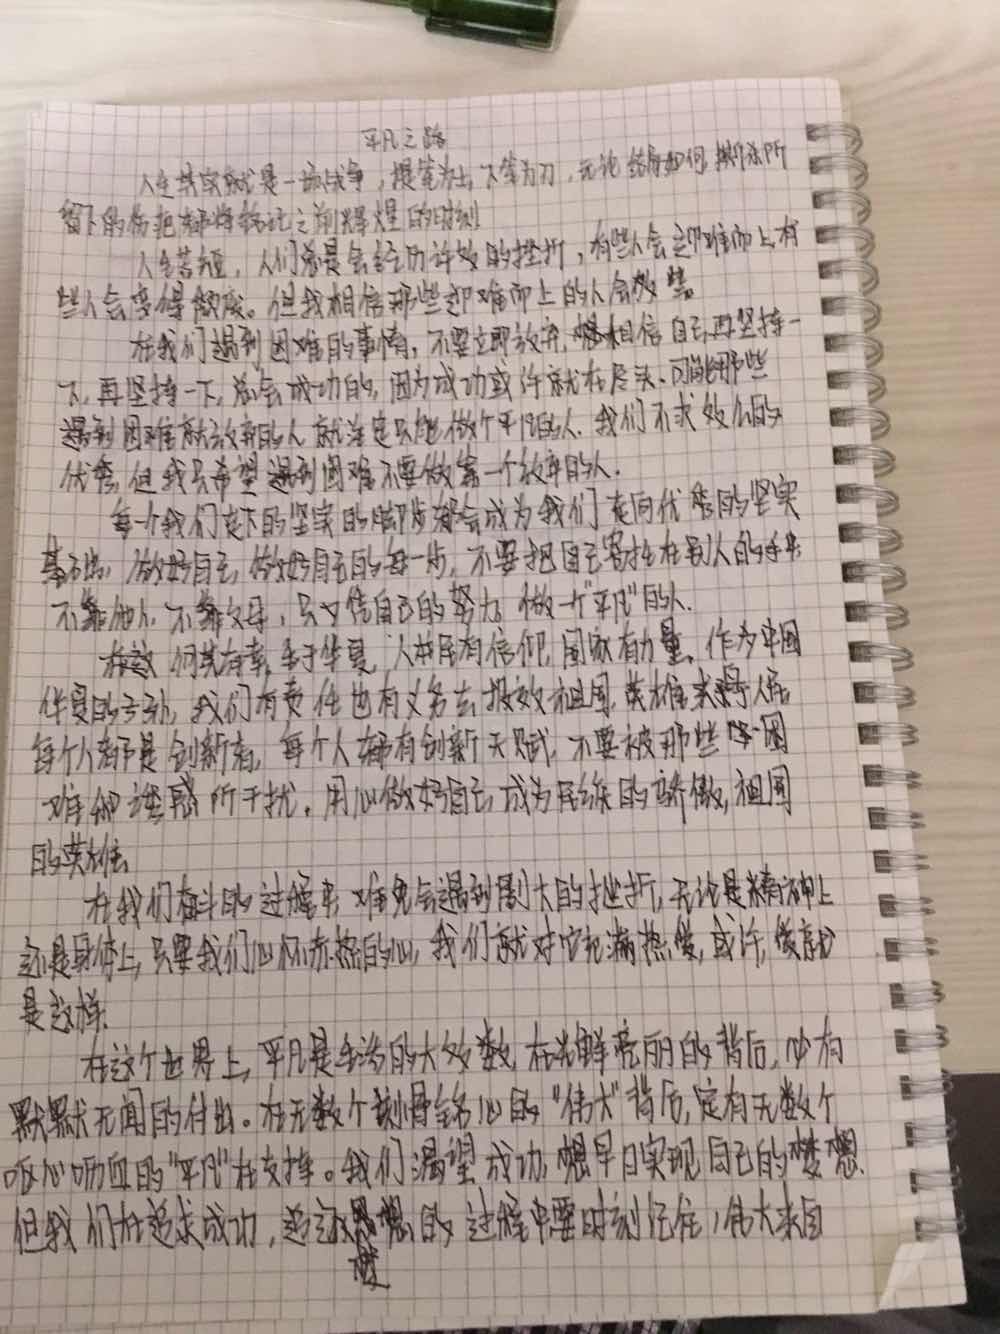 平凡之路
人生其实就是一场战争，提笔为士，下笔为刀，无论结局如何，
留下的伤疤都将铭记之前辉煌的时刻
人生苦短，人们总是会经历许多的挫折，有些人会迎难而上，有
些人会变得颓废。但我相信那些迎难而上的人会
在我们遇到困难的事情，不要立即放弃，相信自己，再坚持一
下，再坚持一下，总会成功的，因为成功或许就在尽头。可能那些
遇到困难就放弃的人就注定只能做个平凡的人，我们不求多么的
优秀，但我只希望遇到困难不要做第一个放弃的人．
每一个我们走下的坚实的脚步都会成为我们走向优秀的坚实
基础，做好自己，做好自己的每一步，不要把自己寄托在别人的手里
不靠他人，不靠父母，只凭借自己的努力做一个"平凡"的人．
何其有幸，生于华夏，人民有信仰，国家有力量，作为中国
华夏的，我们有责任也有义务去报效祖国，英雄来自人民
每个人都是创新者，每个人都有创新天赋，不要被那些困
难和诱惑所干扰，用心做好自己，成为民族的骄傲，祖国
的英雄
在我们奋斗的过程中，难免会遇到巨大的挫折，无论是精神上
还是身体上，只要我们心怀赤热的心，我们就对它充满热爱，或许，爱就
是这样．
在这个世界上，平凡是生活的大多数，在光鲜亮丽的背后，必有
默默无闻的付出。在无数个刻骨铭心的"伟大"背后，定有无数个
呕心沥血的"平凡"在支持。我们渴望成功，想早日实现自己的梦想．
但我们在追求成功，追逐梦想的过程中要时刻记住，伟大来自